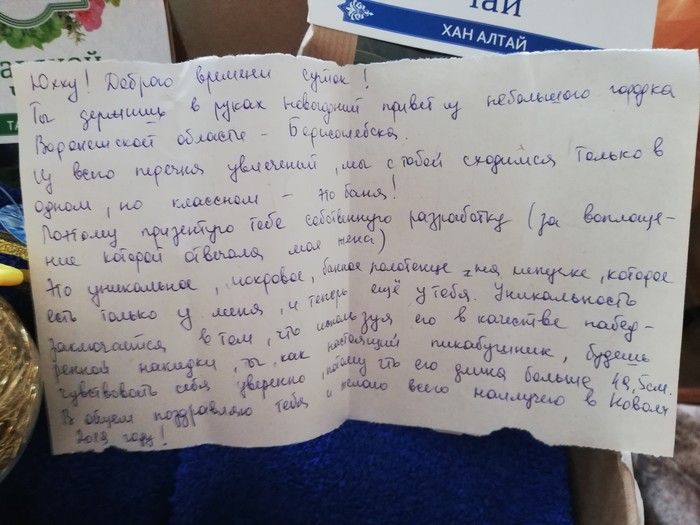 чай
ХАН АЛТАЙ
Юхху! Доброго времени суток!
Ты держишь в руках новогодний привет из небольшого городка
Воронежской области - Борисоглебска.
Из всего перечня увлечений, мы с тобой сходимся только в
одном, но классном - это баня!
Поэтому презентую тебе собственную разработку (за воплоще-
ние которой отвечала моя жена)
Это уникальное, махровое, банное полотенце на липучке, которое
есть только у меня, и теперь ещё у тебя. Уникальность
заключается в том, что используя его в качестве набед-
ренной накидки, ты, как настоящий пикабушник, будешь
чувствовать себя уверенно, потому что его длина больше 49,5см.
В общем поздравляю тебя и желаю всего наилучшего в Новом
2019 году!